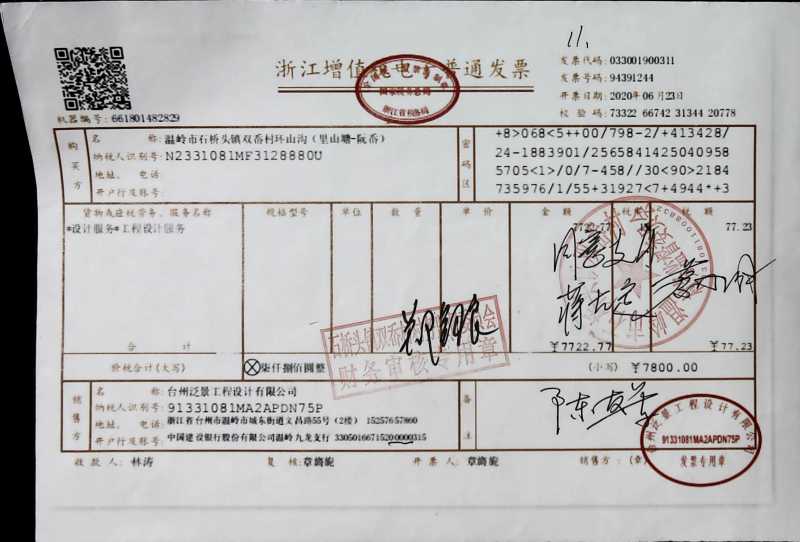 11.
浙江增值税电子普通发票
国家税务总局
浙江省税务局
发票代码: 033001900311
发票号码: 94391244
开票日期: 2020年06月23日
校验码: 73322 66742 31344 20778
机器编号: 661801482829
购买方
名称: 温岭市石桥头镇双岙村环山沟(里山塘-阮岙)
纳税人识别号: N2331081MF3128880U
地址、电话:
开户行及账号:
密码区
+8>068<5++00/798-2/+413428/
24-1883901/2565841425040958
5705<1>/0/7-458//30<90>2184
735976/1/55+31927<7+4944*+3
货物或应税劳务、服务名称 规格型号 单位 数量 单价 金额 税率 税额
*设计服务*工程设计服务 7722.77 77.23
石桥头镇双岙村
财务审核专用章
合计 ￥7722.77 ￥77.23
价税合计(大写) ⊗柒仟捌佰圆整 (小写) ￥7800.00
销售方
名称: 台州泛景工程设计有限公司
纳税人识别号: 91331081MA2APDN75P
地址、电话: 浙江省台州市温岭市城东街道文昌路55号(2楼) 15257657860
开户行及账号: 中国建设银行股份有限公司温岭九龙支行 33050166715200000315
备注
台州泛景工程设计有限公司
91331081MA2APDN75P
发票专用章
收款人: 林涛 复核: 章旖旎 开票人: 章旖旎 销售方: (章)